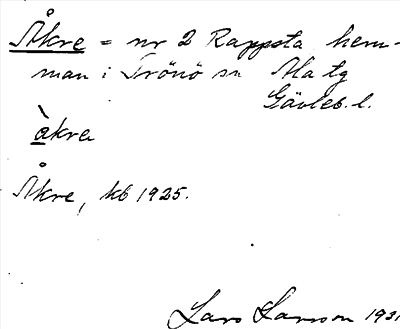 Åkre = nr 2 Rappsta hem-
man i Trönö sn Ala tg
Gävleb. l.
àkra
Åkre, kb 1925.
Lars Larsson 1931